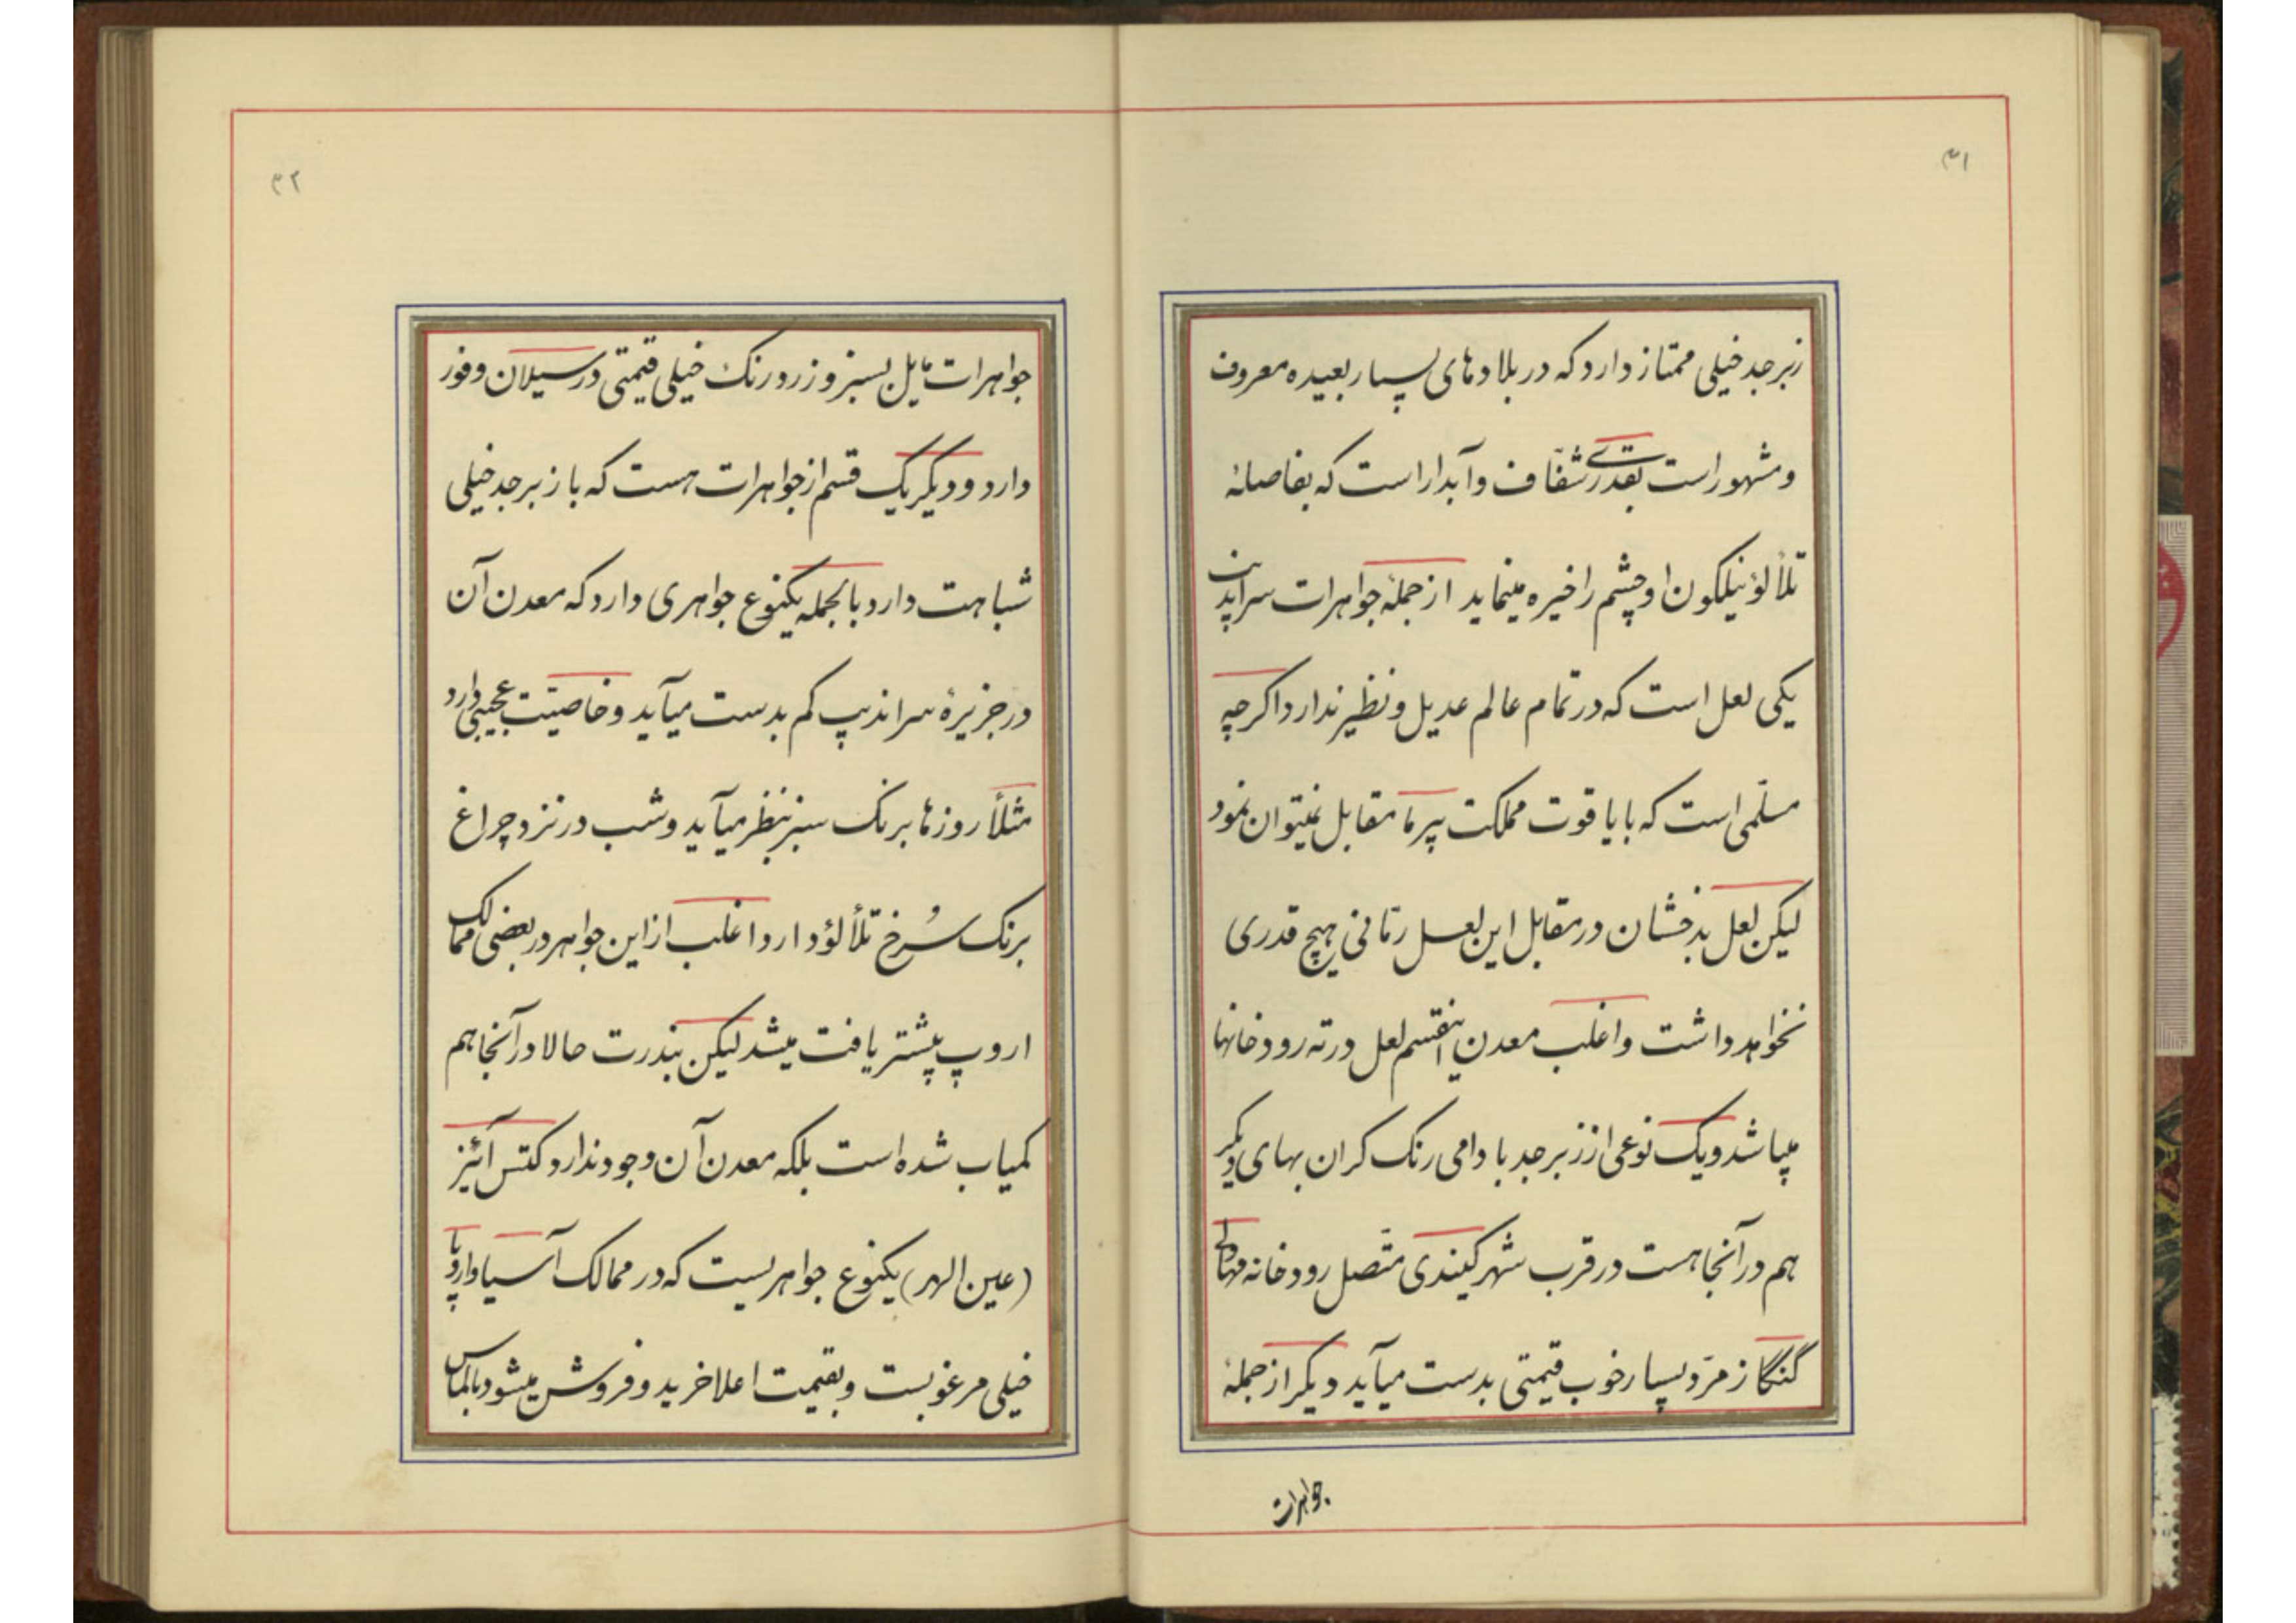 ۳۱
زبرجد خیلی ممتاز دارد که در بلادهای بسیار بعیده معروف
و مشهور است بقدری شفاف و آبدار است که بفاصلهٔ
تلألؤ نیلگون او چشم را خیره مینماید از جملهٔ جواهرات سراندیب
یکی لعل است که در تمام عالم عدیل و نظیر ندارد اگرچه
مسلّمی است که با یاقوت مملکت پیرما مقابل نمیتوان نمود
لیکن لعل بدخشان در مقابل این لعل رمّانی هیچ قدری
نخواهد داشت و اغلب معدن اینقسم لعل در ته رودخانها
میباشد و یک نوعی از زبرجد بادامی رنک کران بهای دیکر
هم در آنجا هست در قرب شهر کیندی متّصل رودخانه مهاولی
گنگا زمرّد بسیار خوب قیمتی بدست میآید دیکر از جملهٔ
جواهرات
۳۲
جواهرات مایل بسبز و زرد رنک خیلی قیمتی در سیلان وفور
دارد و دیکر یک قسم از جواهرات هست که با زبرجد خیلی
شباهت دارد بالجمله یکنوع جواهری دارد که معدن آن
در جزیرهٔ سراندیب کم بدست میآید و خاصیّت عجیبی دارد
مثلاً روزها برنک سبز بنظر میآید و شب در نزد چراغ
برنک سُرخ تلألؤ دارد اغلب از این جواهر در بعضی ممالک
اروپ پیشتر یافت میشد لیکن بندرت حالا در آنجا هم
کمیاب شده است بلکه معدن آن وجود ندارد کتس آئیز
(عین الهر) یکنوع جواهریست که در ممالک آسیا و اروپا
خیلی مرغوبست و بقیمت اعلا خرید و فروش میشود بالماس